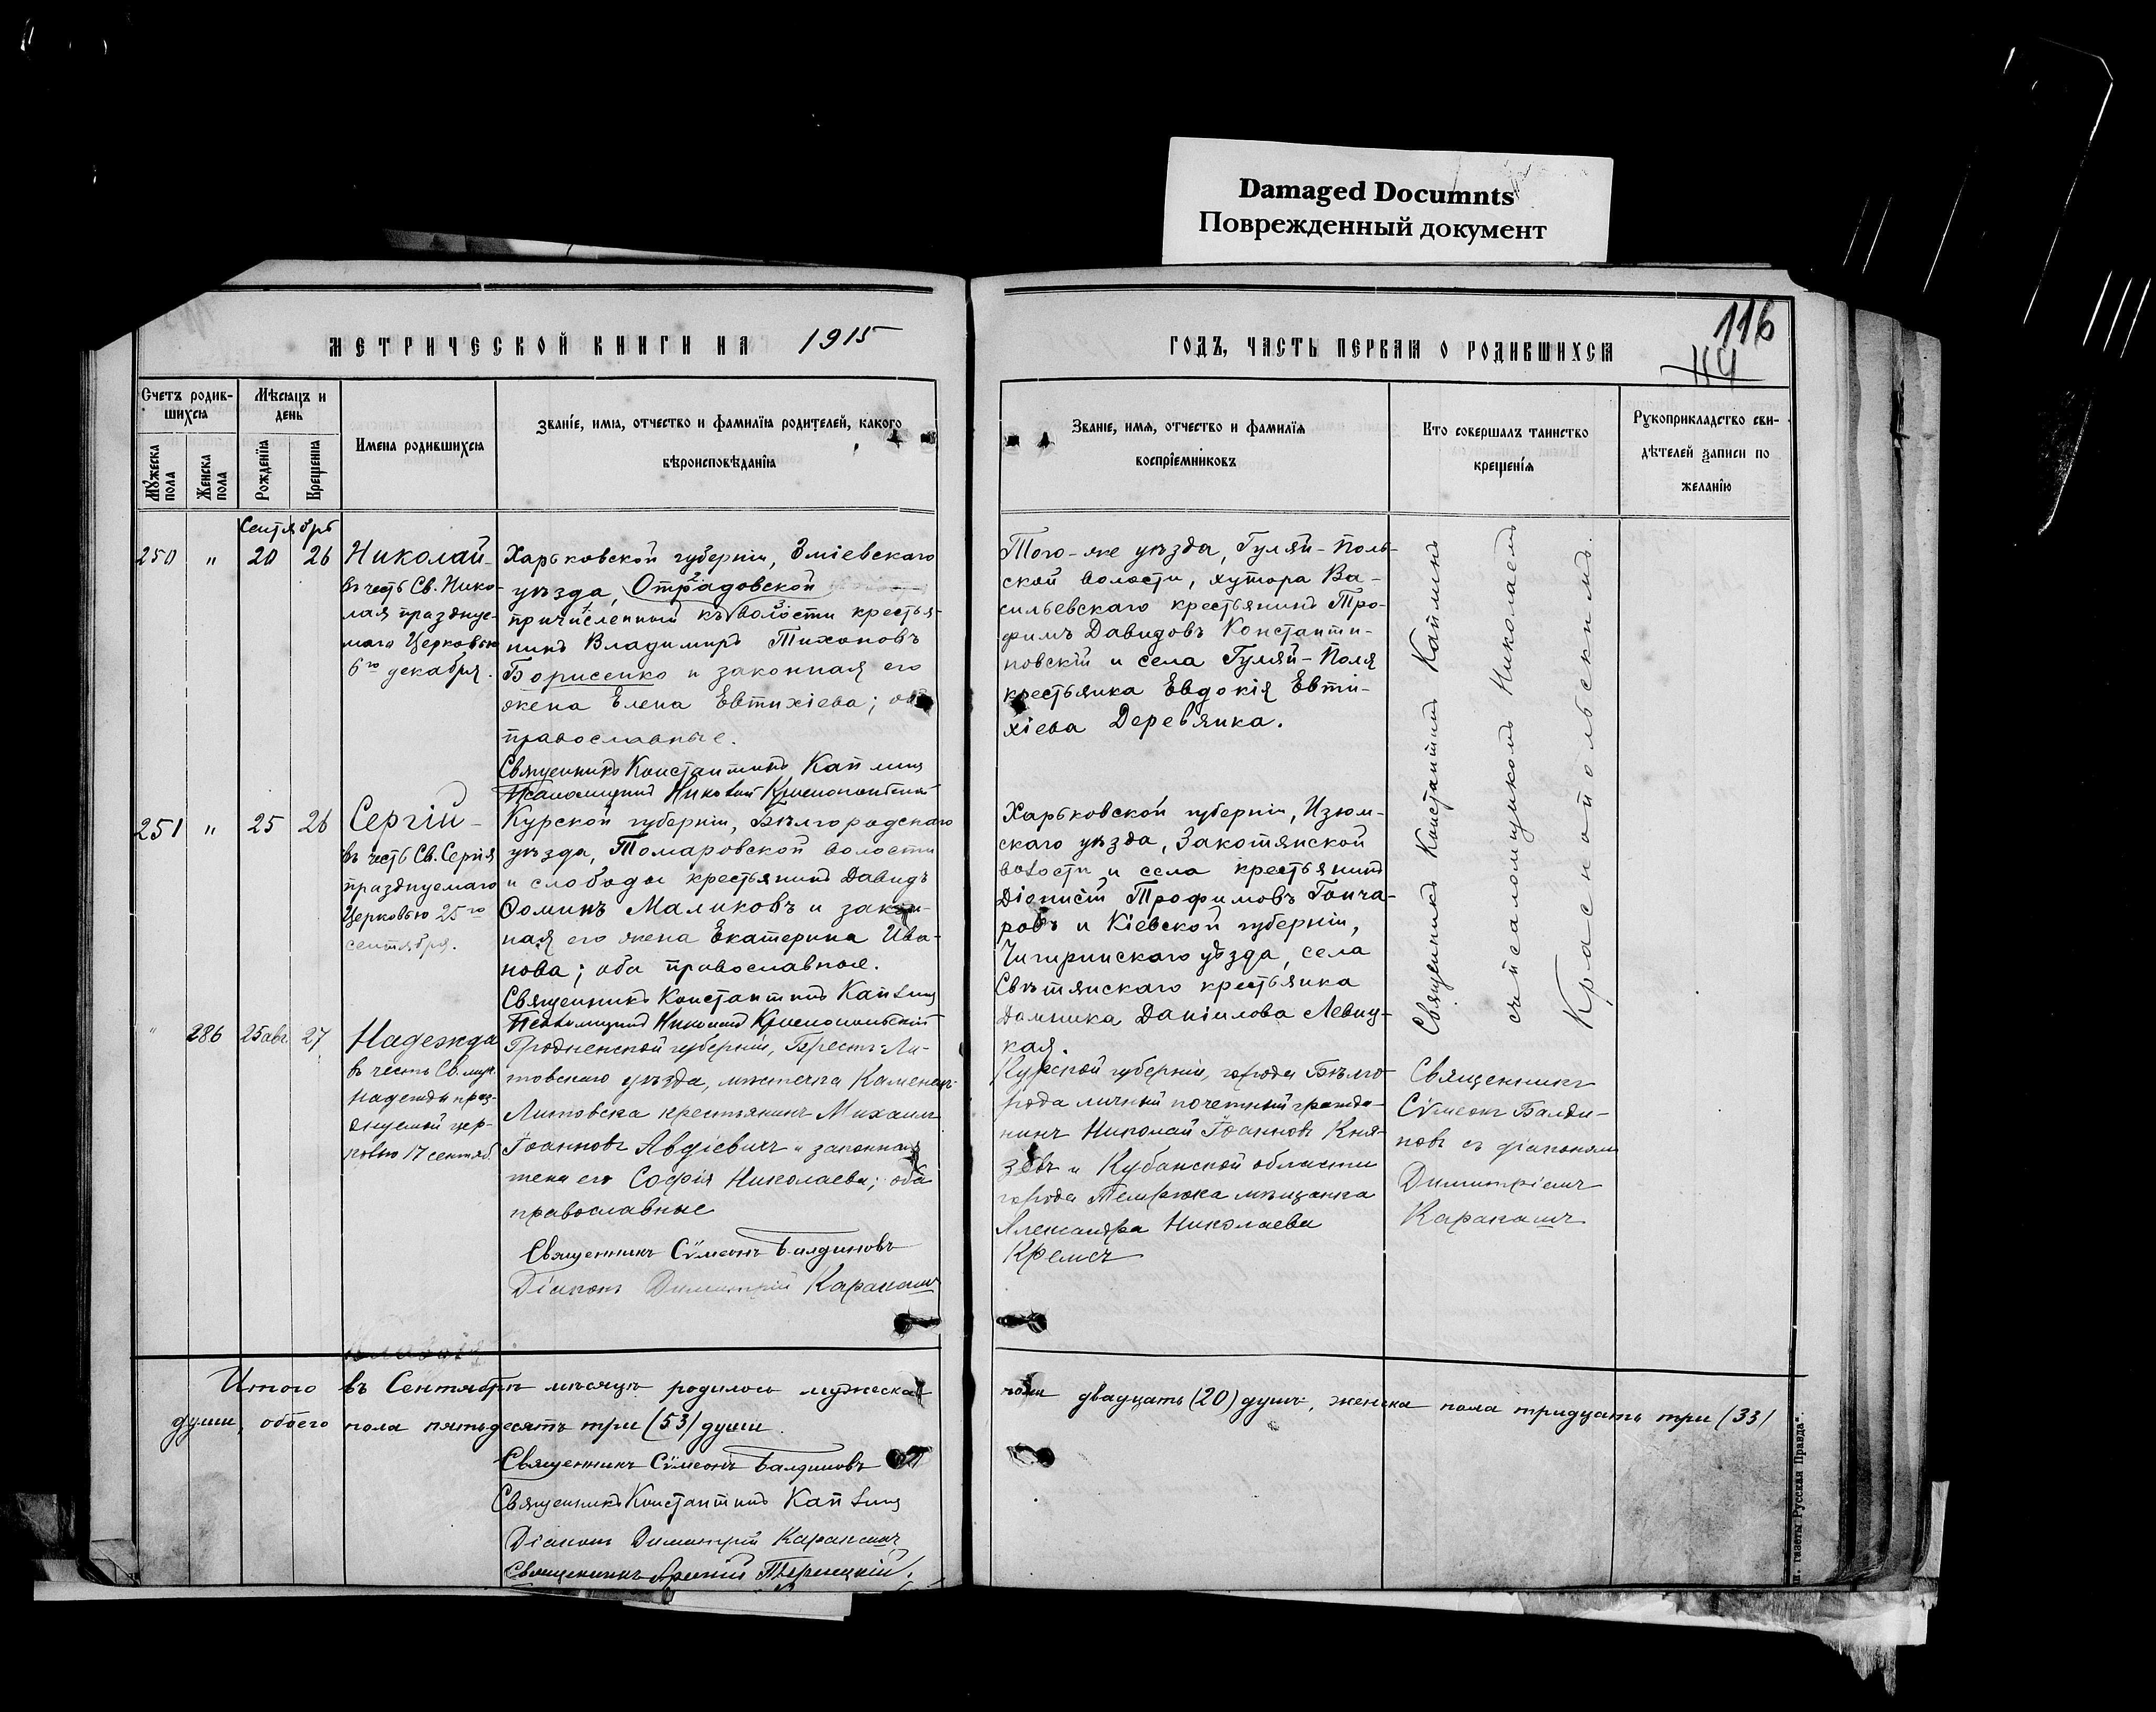 Damaged Documnts
Поврежденный документ
116
114
МЕТРИЧЕСКОЙ КНИГИ НА 1915
ГОДЪ, ЧАСТЬ ПЕРВАЯ О РОДИВШИХСЯ
Счетъ родив-
шихся
Мужеска пола
Женска пола
Мѣсяцъ и
день
Рожденія
Крещенія
Имена родившихся
Званіе, имя, отчество и фамилія родителей, какого
вѣроисповѣданія
Званіе, имя, отчество и фамилія
воспріемниковъ
Кто совершалъ таинство
крещенія
Рукоприкладство сви-
дѣтелей записи по
желанію
Сентябрь
250 " 20 26
Николай
въ честь Св. Нико-
лая празднуе-
маго Церковью
6го декабря.
Харьковской губерніи, Зміевскаго
уѣзда, Отрадовской
причисленный къ волости крестья-
нинъ Владимиръ Тихоновъ
Борисенко и законная его
жена Елена Евтихіева; оба
православные.
Священникъ Константинъ Каплинъ
Псаломщикъ Николай Краснопольскій
Того-же уѣзда, Гуляй-Поль-
ской волости, хутора Ва-
сильевскаго крестьянинъ Тро-
фимъ Давидовъ Константи-
новскій и села Гуляй-Поля
крестьянка Евдокія Евти-
хіева Деревянка.
Священникъ Константинъ Каплинъ
съ псаломщикомъ Николаемъ
Краснопольскимъ.
251 " 25 26
Сергій
въ честь Св. Сергія
празднуемаго
Церковью 25го
сентября.
Курской губерніи, Бѣлгородскаго
уѣзда, Томаровской волости
и слободы крестьянинъ Давидъ
Ѳоминъ Маликовъ и закон-
ная его жена Екатерина Ива-
нова; оба православные.
Священникъ Константинъ Каплинъ
Псаломщикъ Николай Краснопольскій
Харьковской губерніи, Изюм-
скаго уѣзда, Закотянской
волости и села крестьянинъ
Діонисій Трофимовъ Гонча-
ровъ и Кіевской губерніи,
Чигиринскаго уѣзда, села
Свѣтянскаго крестьянка
Домника Даніилова Левиц-
кая.
" 286 25 авг. 27
Надежда
въ честь Св. муч.
Надежды праз-
днуемой цер-
ковью 17 сентяб.
Гродненской губерніи, Брестъ-Ли-
товскаго уѣзда, мѣстечка Каменецъ-
Литовска крестьянинъ Михаилъ
Іоанновъ Авдіевичъ и законная
жена его Софія Николаева; оба
православные
Священникъ Сѵмеонъ Балдиновъ
Діаконъ Димитрій Каракашъ
Курской губерніи, города Бѣлго-
рода личный почетный гражда-
нинъ Николай Іоанновъ Кня-
зевъ и Кубанской области
города Темрюка мѣщанка
Александра Николаева
Кремсъ
Священникъ
Сѵмеонъ Балди-
новъ съ діакономъ
Димитріемъ
Каракашъ
Итого въ Сентябрѣ мѣсяцѣ родилось мужеска пола двадцать (20) душъ, женска пола тридцать три (33)
души, обоего пола пятьдесятъ три (53) души.
Священникъ Сѵмеонъ Балдиновъ
Священникъ Константинъ Каплинъ
Діаконъ Димитрій Каракашъ
Священникъ
газеты Русская Правда".